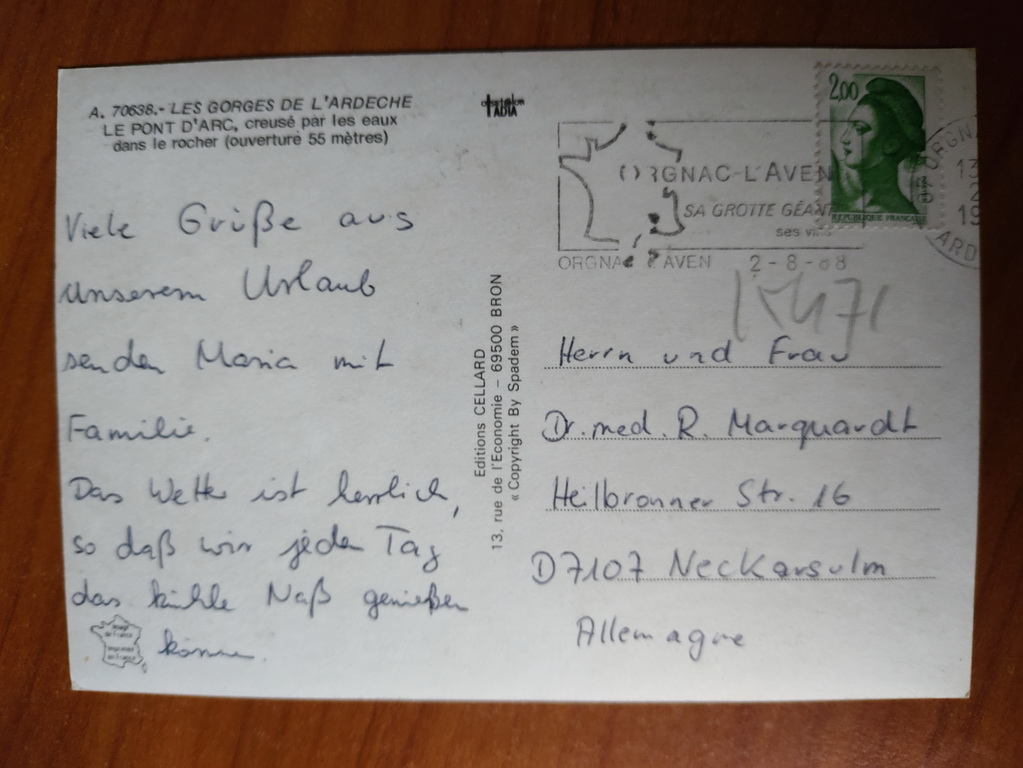 A. 70638.- LES GORGES DE L'ARDECHE
LE PONT D'ARC, creusé par les eaux
dans le rocher (ouverture 55 mètres)
Viele Grüße aus
unserem Urlaub
senden Maria mit
Familie.
Das Wetter ist herrlich,
so daß wir jeden Tag
das kühle Naß genießen
können.
Editions CELLARD
13, rue de l'Economie – 69500 BRON
« Copyright By Spadem »
2,00
REPUBLIQUE FRANÇAISE
ORGNAC-L'AVEN
SA GROTTE GÉANTE
ses
ORGNAC L'AVEN 2-8-88
Herrn und Frau
Dr. med. R. Marquardt
Heilbronner Str. 16
D7107 Neckarsulm
Allemagne